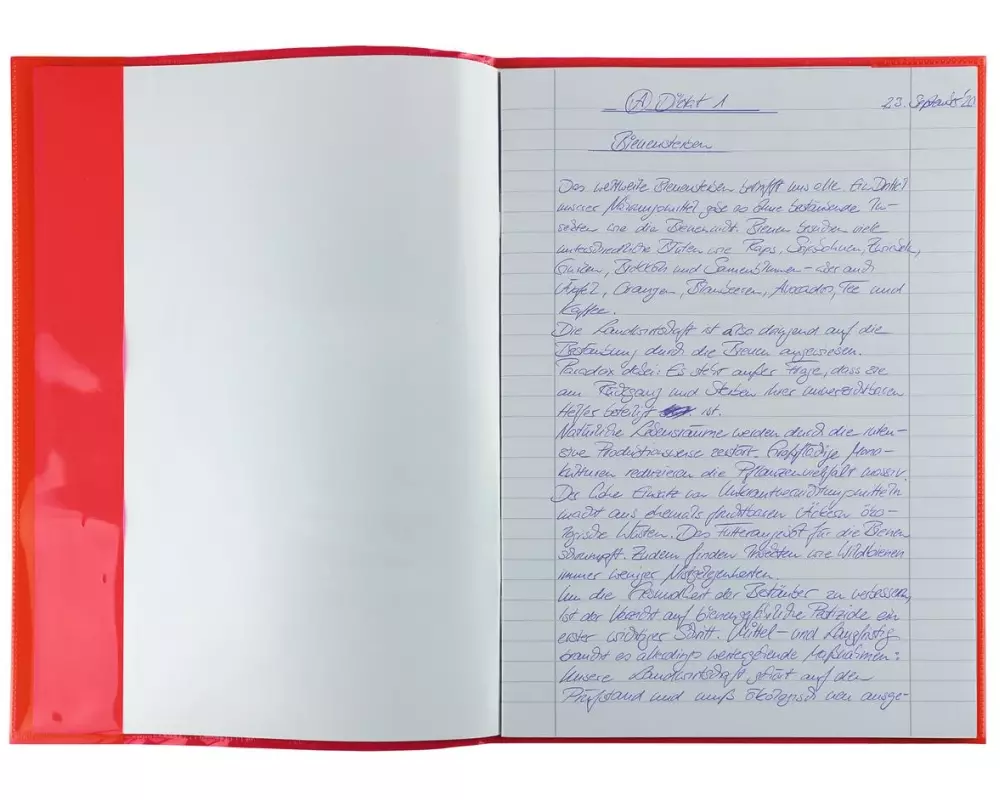 (A) Diktat 1
23. September '20
Bienensterben
Das weltweite Bienensterben betrifft uns alle. Ein Drittel
unserer Nahrungsmittel gäbe es ohne bestäubende In-
sekten wie die Biene nicht. Bienen besuchen viele
unterschiedliche Blüten wie Raps, Sojabohnen, Zwiebeln,
Gurken, Brokkoli und Sonnenblumen – aber auch
Äpfel, Orangen, Blaubeeren, Avocados, Tee und
Kaffee.
Die Landwirtschaft ist also dringend auf die
Bestäubung durch die Bienen angewiesen.
Paradox dabei: Es steht außer Frage, dass sie
am Rückgang und Sterben ihrer unverzichtbaren
Helfer beteiligt ist.
Natürliche Lebensräume werden durch die inten-
sive Produktionsweise zerstört. Großflächige Mono-
kulturen reduzieren die Pflanzenvielfalt massiv.
Der hohe Einsatz von Unkrautbekämpfungsmitteln
macht aus ehemals fruchtbaren Äckern öko-
logische Wüsten. Das Futterangebot für die Bienen
schrumpft. Zudem finden Insekten wie Wildbienen
immer weniger Nistgelegenheiten.
Um die Gesundheit der Bestäuber zu verbessern,
ist der Verzicht auf bienengefährliche Pestizide ein
erster wichtiger Schritt. Mittel- und Langfristig
braucht es allerdings weitergehende Maßnahmen:
Unsere Landwirtschaft gehört auf den
Prüfstand und muß ökologisch neu ausge-